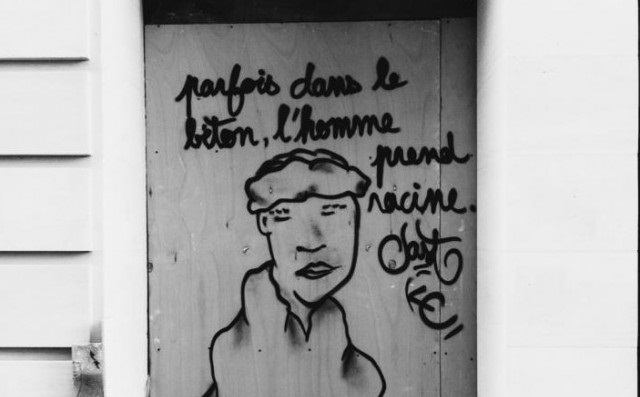 parfois dans le
béton, l'homme
prend
racine.